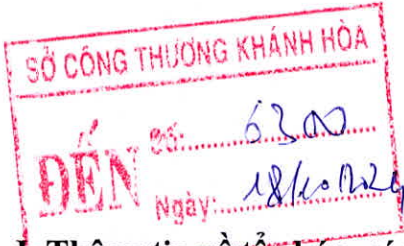 SỞ CÔNG THƯƠNG KHÁNH HÒA
ĐẾN
Số: 6300
Ngày: 18/10/2024